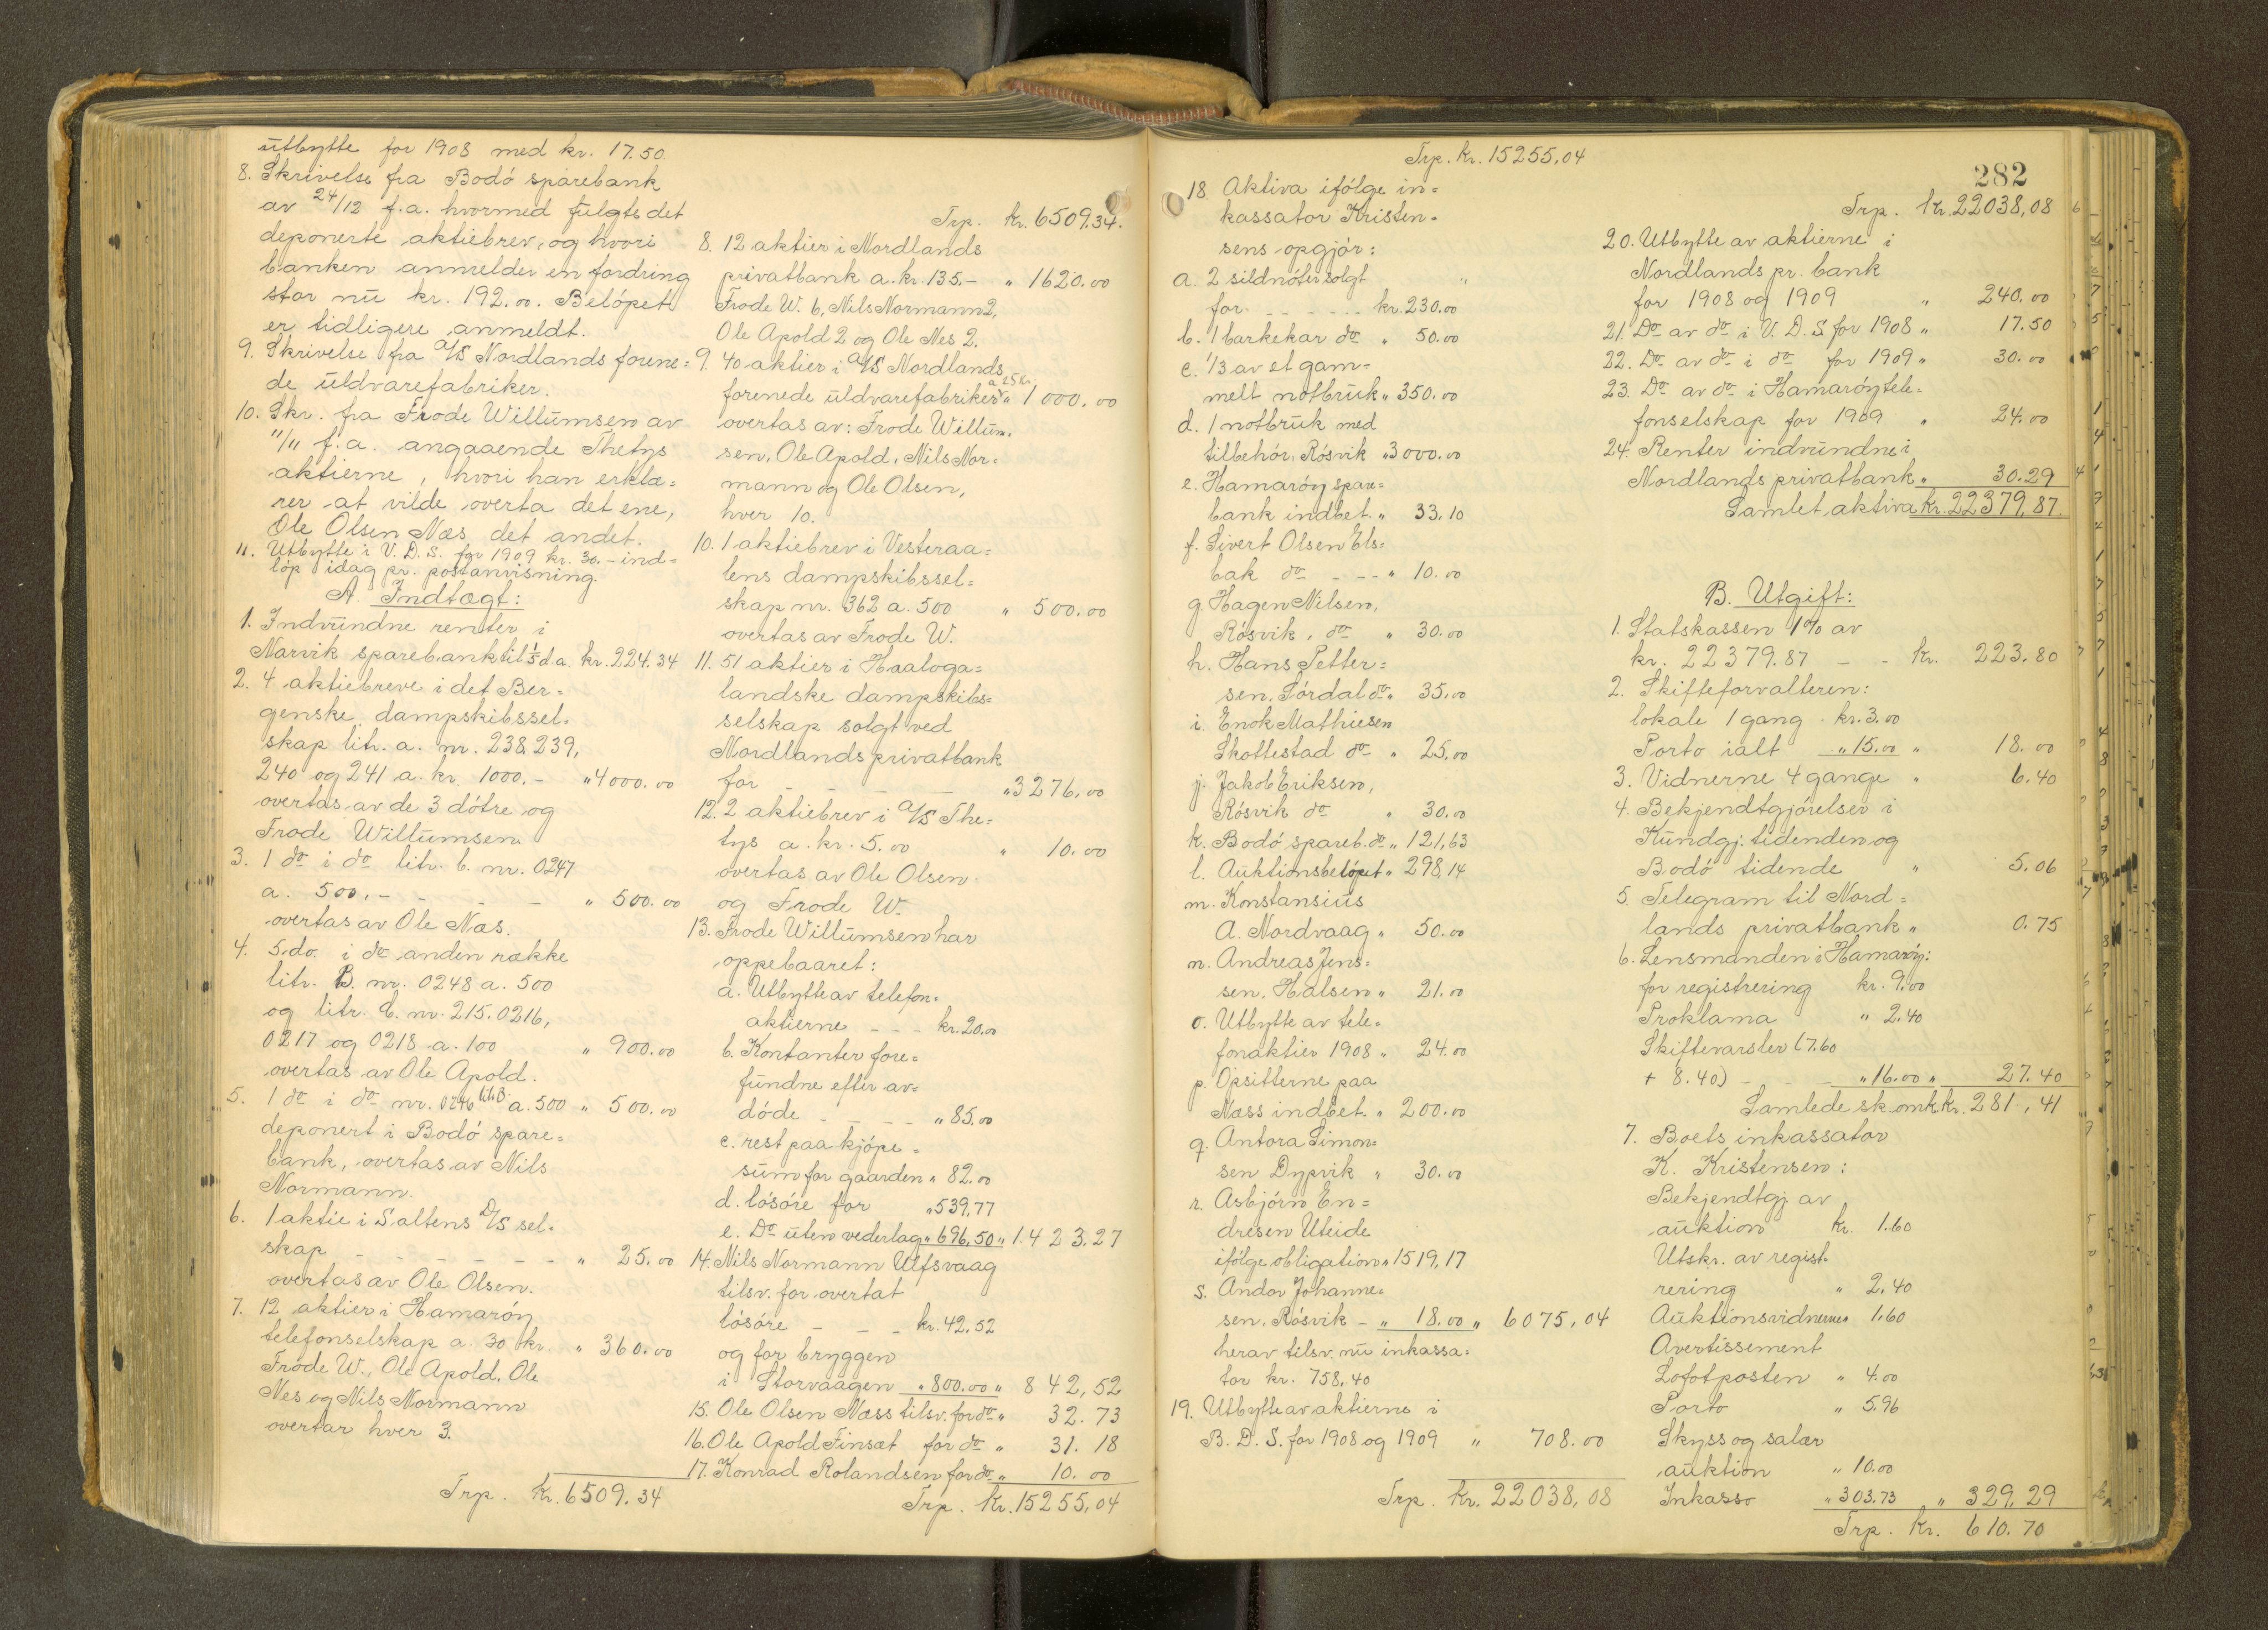 utbytte for 1908 med kr. 17.50.
8. Skrivelse fra Bodö sparebank
av 24/12 f.a. hvormed fulgte det
deponerte aktiebrev, og hvori
banken anmelder en fordring
stor nu kr. 192.00. Belöpet
er tidligere anmeldt.
9. Skrivelse fra A/S Nordlands forene=
de uldvarefabriker.
10. Skr. fra Frode Willumsen av
11/11 f.a. angaaende Thetys
aktierne, hvori han erklæ=
rer at vilde overta det ene,
Ole Olsen Næs det andet.
11. Utbytte i V.D.S. for 1909 kr. 30.- ind=
löp idag pr. postanvisning.
A. Indtægt:
1. Indvundne renter i
Narvik sparebank til 1/5 d.a. kr. 224.34
2. 4 aktiebreve i det Ber=
genske dampskibssel=
skap litr. a. nr. 238, 239,
240 og 241 a. kr. 1000.- " 4000.00
overtas av de 3 dötre og
Frode Willumsen
3. 1 do i do litr. b. nr. 0247
a. 500.- - - - " 500.00
overtas av Ole Næs.
4. 5 do. i do anden række
litr. B. nr. 0248 a. 500
og litr. C. nr. 215. 0216,
0217 og 0218 a. 100 " 900.00
overtas av Ole Apold.
5. 1 do i do nr. 0246 lit.B. a. 500 " 500.00
deponert i Bodö spare=
bank, overtas av Nils
Normann.
6. 1 aktie i Saltens D/S sel=
skap - - - - - - " 25.00
overtas av Ole Olsen.
7. 12 aktier i Hamaröy
telefonselskap a. 30 kr. " 360.00
Frode W., Ole Apold, Ole
Nes og Nils Normann
overtar hver 3.
Trp. Kr. 6509.34
Trp. kr. 6509.34.
8. 12 aktier i Nordlands
privatbank a. kr. 135.- " 1620.00
Frode W. 6, Nils Normann 2,
Ole Apold 2 og Ole Nes 2.
9. 40 aktier i A/S Nordlands
forenede uldvarefabriker a 25 kr. " 1000.00
overtas av: Frode Willum=
sen, Ole Apold, Nils Nor=
mann og Ole Olsen,
hver 10.
10. 1 aktiebrev i Vesteraa=
lens dampskibssel=
skap nr. 362 a. 500 " 500.00
overtas av Frode W.
11. 51 aktier i Haaloga=
landske dampskibs=
selskap solgt ved
Nordlands privatbank
for - - - - " 3276.00
12. 2 aktiebrev i A/S The=
tys a. kr. 5.00 " 10.00
overtas av Ole Olsen
og Frode W.
13. Frode Willumsen har
oppebaaret:
a. Utbytte av telefon=
aktierne - - - kr. 20.00
b. Kontanter fore=
fundne efter av=
döde - - - - " 85.00
c. rest paa kjöpe=
sum for gaarden " 82.00
d. lösöre for " 539,77
e. Do uten vederlag " 696,50 " 1.423.27
14. Nils Normann Ulfsvaag
tilsv. for overtat
lösöre - - - kr. 42.52
og for bryggen
i Storvaagen " 800.00 " 842,52
15. Ole Olsen Næss tilsv. for do " 32.73
16. Ole Apold Finsæt for do " 31.18
17. Konrad Rolandsen for do " 10.00
Trp. Kr. 15255,04
Trp. Kr. 15255,04
18. Aktiva ifölge in=
kassator Kristen=
sens opgjör:
a. 2 sildnöter solgt "
for - - - - - kr. 230.00
b. 1 barkekar do " 50.00
c. 1/3 av et gam=
melt notbruk " 350.00
d. 1 notbruk med
tilbehör, Rösvik " 3000.00
e. Hamaröy spare=
bank indbet. " 33.10
f. Sivert Olsen Els=
bak do - - - " 10.00
g. Hagen Nilsen,
Rösvik, do " 30.00
h. Hans Petter=
sen, Sördal do " 35.00
i. Enok Mathiesen
Skottestad do " 25.00
j. Jakob Eriksen,
Rösvik do " 30.00
k. Bodö spareb. do " 121,63
l. Auktionsbelöpet " 298,14
m. Konstansius
A. Nordvaag " 50.00
n. Andreas Jens=
sen, Halsen " 21.00
o. Utbytte av tele=
fonaktier 1908 " 24.00
p. Opsitterne paa
Næss indbet. " 200.00
q. Antora Simon=
sen Dypvik " 30.00
r. Asbjörn En=
dresen Uteide
ifölge obligation " 1519,17
s. Andor Johanne=
sen, Rösvik - " 18.00 " 6075,04
herav tilsv. nu inkassa=
tor kr. 758,40
19. Utbytte av aktierne i
B.D.S. for 1908 og 1909 " 708.00
Trp. Kr. 22038,08
282
Trp. Kr. 22038,08
20. Utbytte av aktierne i
Nordlands pr. bank
for 1908 og 1909 " 240.00
21. Do av do i V.D.S. for 1908 " 17.50
22. Do av do i do for 1909 " 30.00
23. Do av do i Hamaröy tele=
fonselskap for 1909 " 24.00
24. Renter indvundne i
Nordlands privatbank " 30.29
Samlet aktiva Kr. 22379,87.
B. Utgift:
1. Statskassen 1% av
kr. 22379.87 - - Kr. 223.80
2. Skifteforvalteren:
lokale 1 gang kr. 3.00
Porto ialt " 15.00 " 18.00
3. Vidnerne 4 gange " 6.40
4. Bekjendtgjörelser i
Kundgj. tidenden og
Bodö tidende " 5.06
5. Telegram til Nord=
lands privatbank " 0.75
6. Lensmanden i Hamaröy:
for registrering kr. 9.00
Proklama " 2.40
Skiftevarsler (7.60
+ 8.40) - - - " 16.00 " 27.40
Samlede sk. omk. kr. 281,41
7. Boets inkassator
K. Kristensen:
Bekjendtgj. av
auktion kr. 1.60
Utskr. av regist=
rering " 2,40
Auktionsvidnerne " 1.60
Avertissement
Lofotposten " 4.00
Porto " 5.96
Skyss og salær
auktion " 10.00
Inkasso " 303.73 " 329,29
Trp. Kr. 610.70